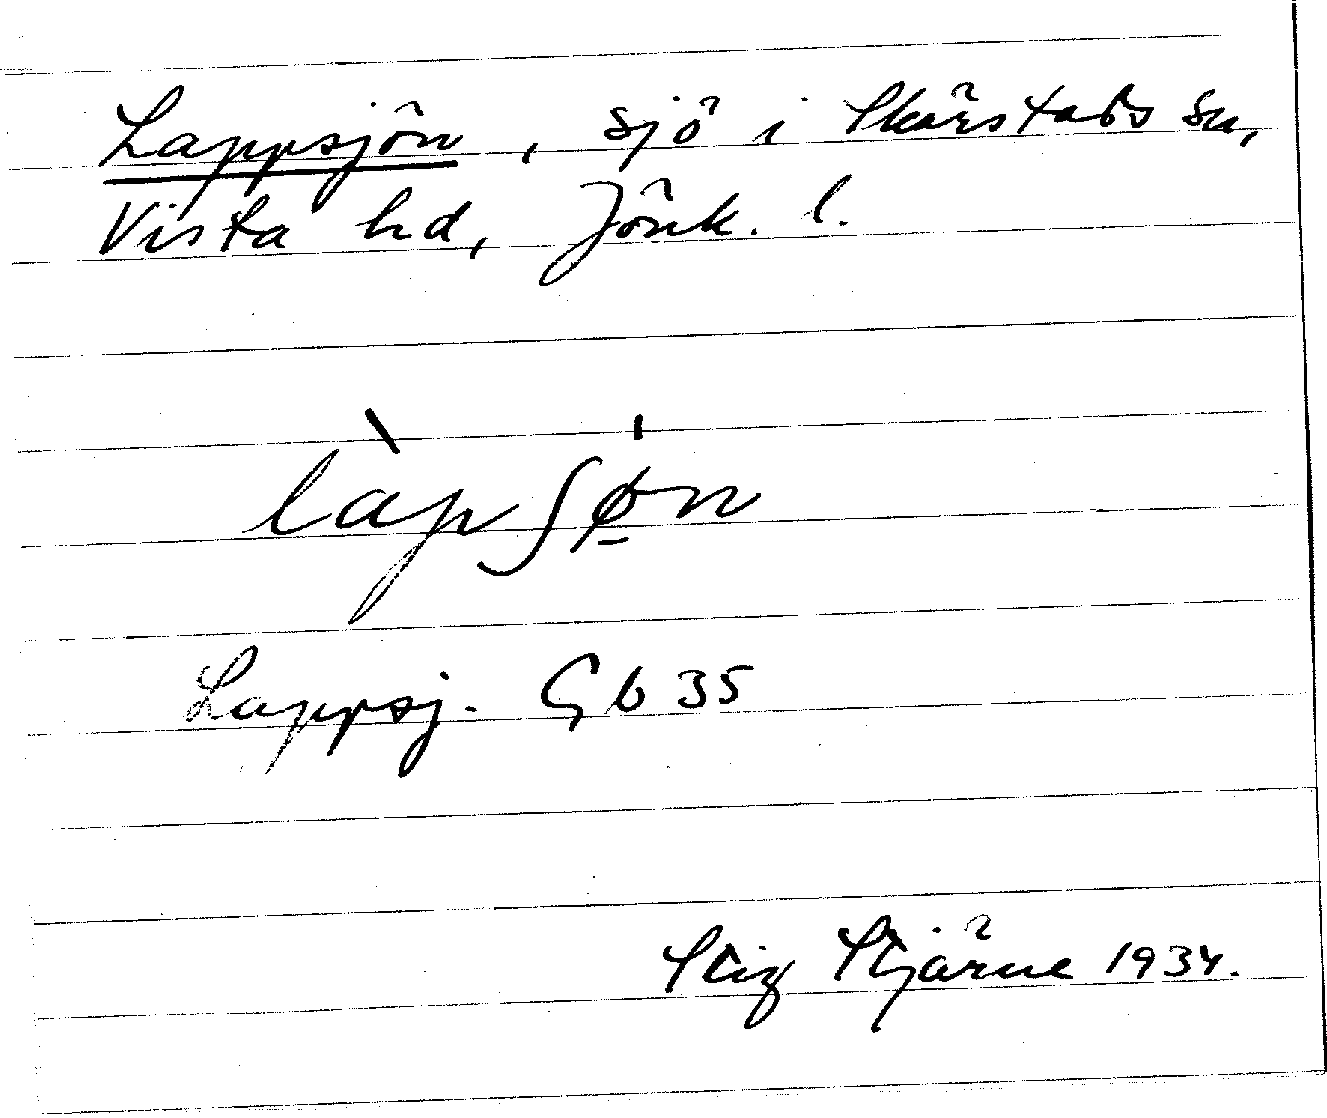 Lappsjön, sjö i Skärstads sn,
Vista hd, Jönk. l.
làpʃø̠ˈn
Lappsj. Gb 35
Stig Stjärne 1934.